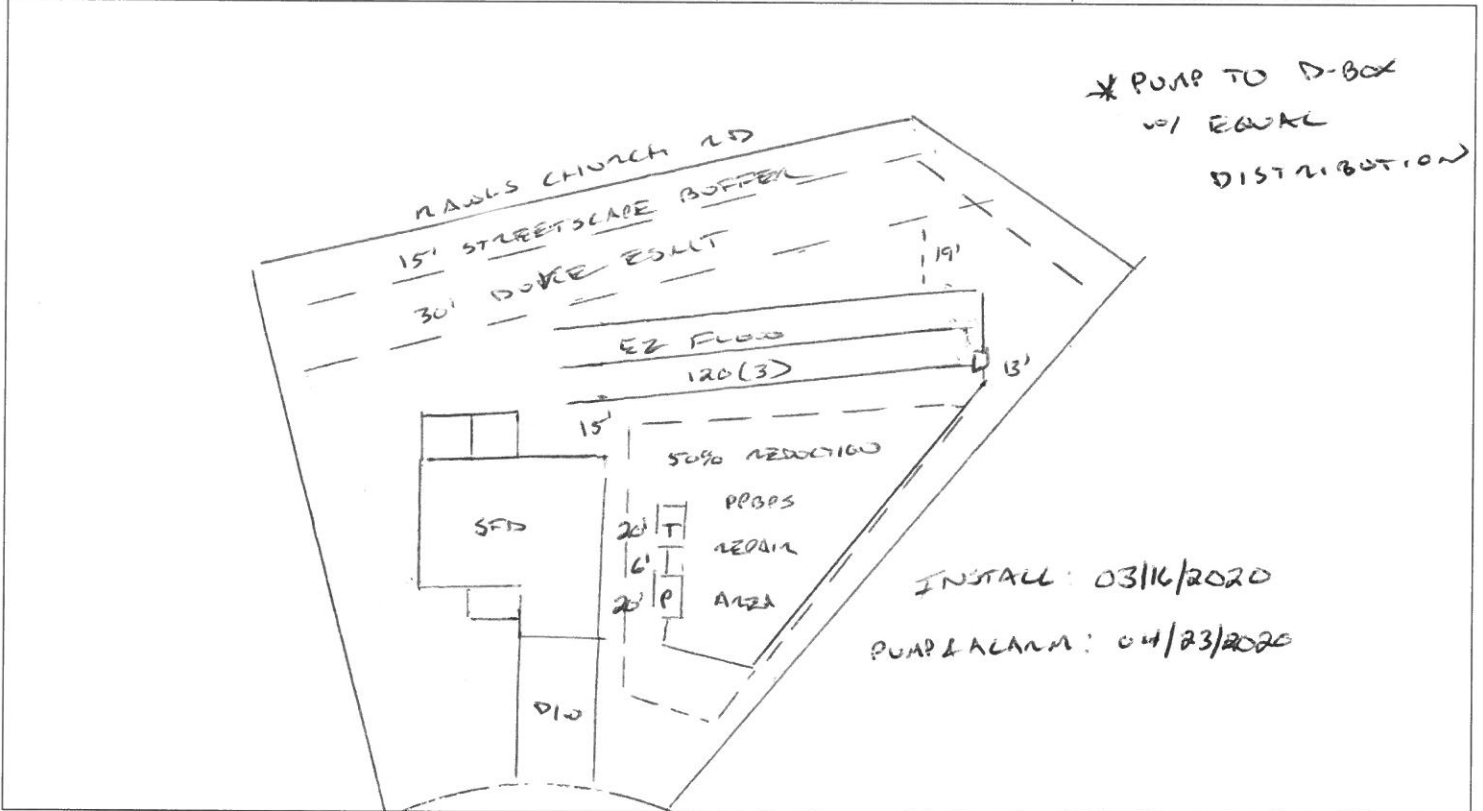 * PUMP TO D-BOX
w/ EQUAL
DISTRIBUTION
RAWLS CHURCH RD
15' STREETSCAPE BUFFER
30' DUKE ESMT
19'
EZ FLOW
120(3)
13'
15'
50% REDUCTION
PPBPS
REPAIR
AREA
SFD
20' T
6'
20' P
D/W
INSTALL: 03/16/2020
PUMP & ALARM: 04/23/2020